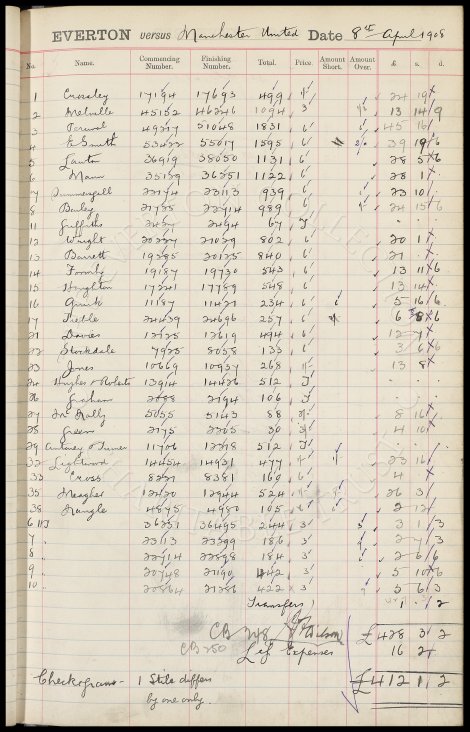 EVERTON versus Manchester United Date 8th April 1908
No. Name. Commencing Number. Finishing Number. Total. Price. Amount Short. Amount Over. £ s. d.
1 Crossley 17194 17693 499 24 19
2 Melville 45152 46246 1094 3 13 14 9
3 49217 51048 1831 6 45 16
4 E Smith 53422 55017 1595 6 39 19 6
5 Lawton 36919 38050 1131 6 28 5 6
6 Mann 35129 36251 1122 6 28 1
7 Summergill 22174 23113 939 6 23 10
8 Bailey 21725 22714 989 6 24 15 6
11 Griffiths 2427 2494 67
12 Wright 20227 21029 802 6 20 1
13 Barrett 19285 20125 840 6 21
14 Formby 19187 19730 543 6 13 11 6
15 Houghton 17241 17789 548 6 13 14
16 Quirk 11187 11421 234 6 5 16 6
17 Treble 22439 22696 257 6 6 8 6
21 Davies 12125 12619 494 6 12 7
22 Stockdale 7925 8058 133 6 3 6 6
23 Jones 10669 10937 268 13 8
24 Hughes & Roberts 13914 14426 512
26 Graham 2088 2194 106
27 Mc Nally 5055 5143 88 8 16
28 Green 2175 2205 30 4 10
29 Turner 11706 12218 512
32 Lightwood 14454 14931 477 23 16
33 Cross 8221 8381 160 6 4
35 Meagher 12420 12944 524 26 3
38 Nangle 4875 4980 105 2 12
6 36251 36495 244 3 3 1 3
7 " 23113 23299 186 3 2 7 3
8 " 22714 22898 184 3 2 6 6
9 " 20748 21190 442 3 5 10 6
10 " 20864 21286 422 3 5 6 3
Transfers 1 2
CB 248 £428 3 2
CB 250 Less Expenses 16 2
£412 1 2
Checkograms - 1 Stile differs
by one only.